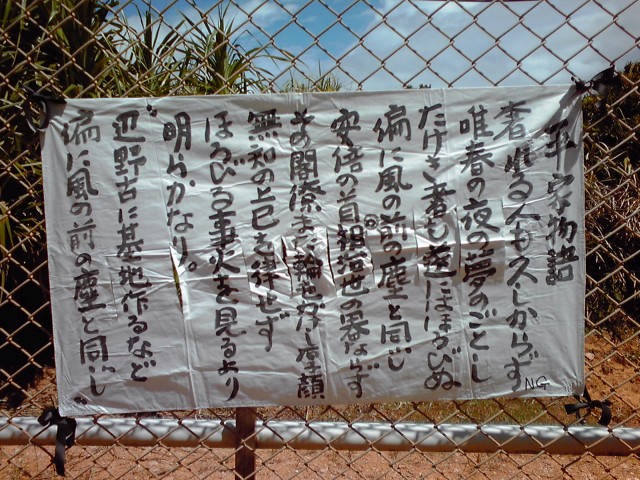 平家物語
奢れる人も久しからず
唯春の夜の夢のごとし
たけき者も遂にはほろびぬ
偏に風の前の塵と同じ
安倍の首相 世の器ならず
その閣僚また輪をかけ厚顔
無知の上已を律せず
ほろびる事火を見るより
明らかなり。
辺野古に基地作るなど
偏に風の前の塵と同じ
NG